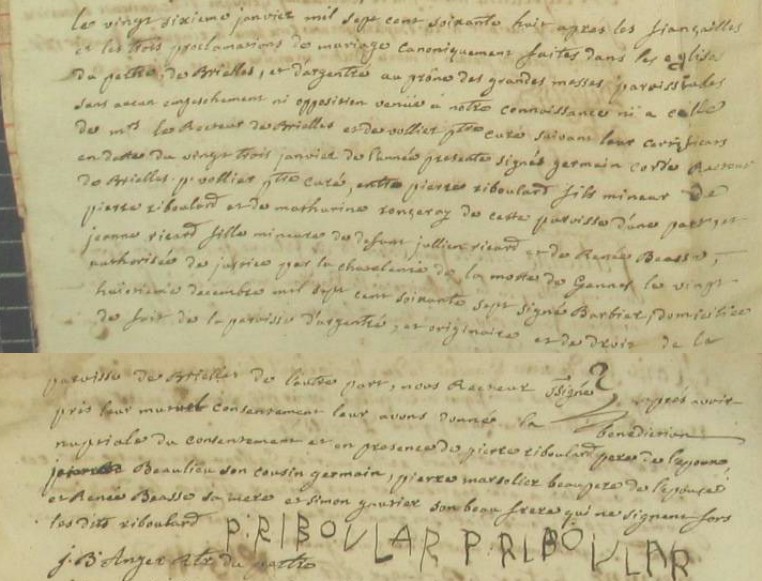 le vingt sixieme janvier mil sept cent soixante huit apres les fiançailles
et les trois proclamations de mariage canoniquement faites dans les eglises
du pertre, de Brielles, et d'argentré au prône des grandes messes paroissiales
sans aucun empeschement ni opposition venüe a notre connaissance ni a celle
de mrs le Recteur de Brielles et de volliet ptre curé suivant leur certificats
en datte du vingt trois janvier de l'année presente signés germain Recteur
de Brielles p. volliet ptre curé, entre pierre riboulard fils mineur de
pierre riboulard et de mathurine ronçeray de cette paroisse d'une part, et
jeanne ricard fille mineure de defunt jullien ricard et de Renée Beasse,
authorisée de justice par la chatelenie de la motte de Gennes le vingt
huitieme decembre mil sept cent soixante sept signé Barbier, domiciliée
de fait de la paroisse d'argentré, et originaire et de droit de la
paroisse de Brielles de l'autre part, nous Recteur Ssigné apres avoir
pris leur mutuel consentement leur avons donné la benediction
nuptiale du consentement et en presence de pierre riboulard pere de l'epoux,
Beaulieu son cousin germain, pierre marsolier beaupere de l'epouse
et Renée Beasse sa mere et simon gautier son beau frere qui ne signent fors
les dits riboulard P. RIBOULAR P. RIBOULAR
j. B. Anger Rtr du pertre